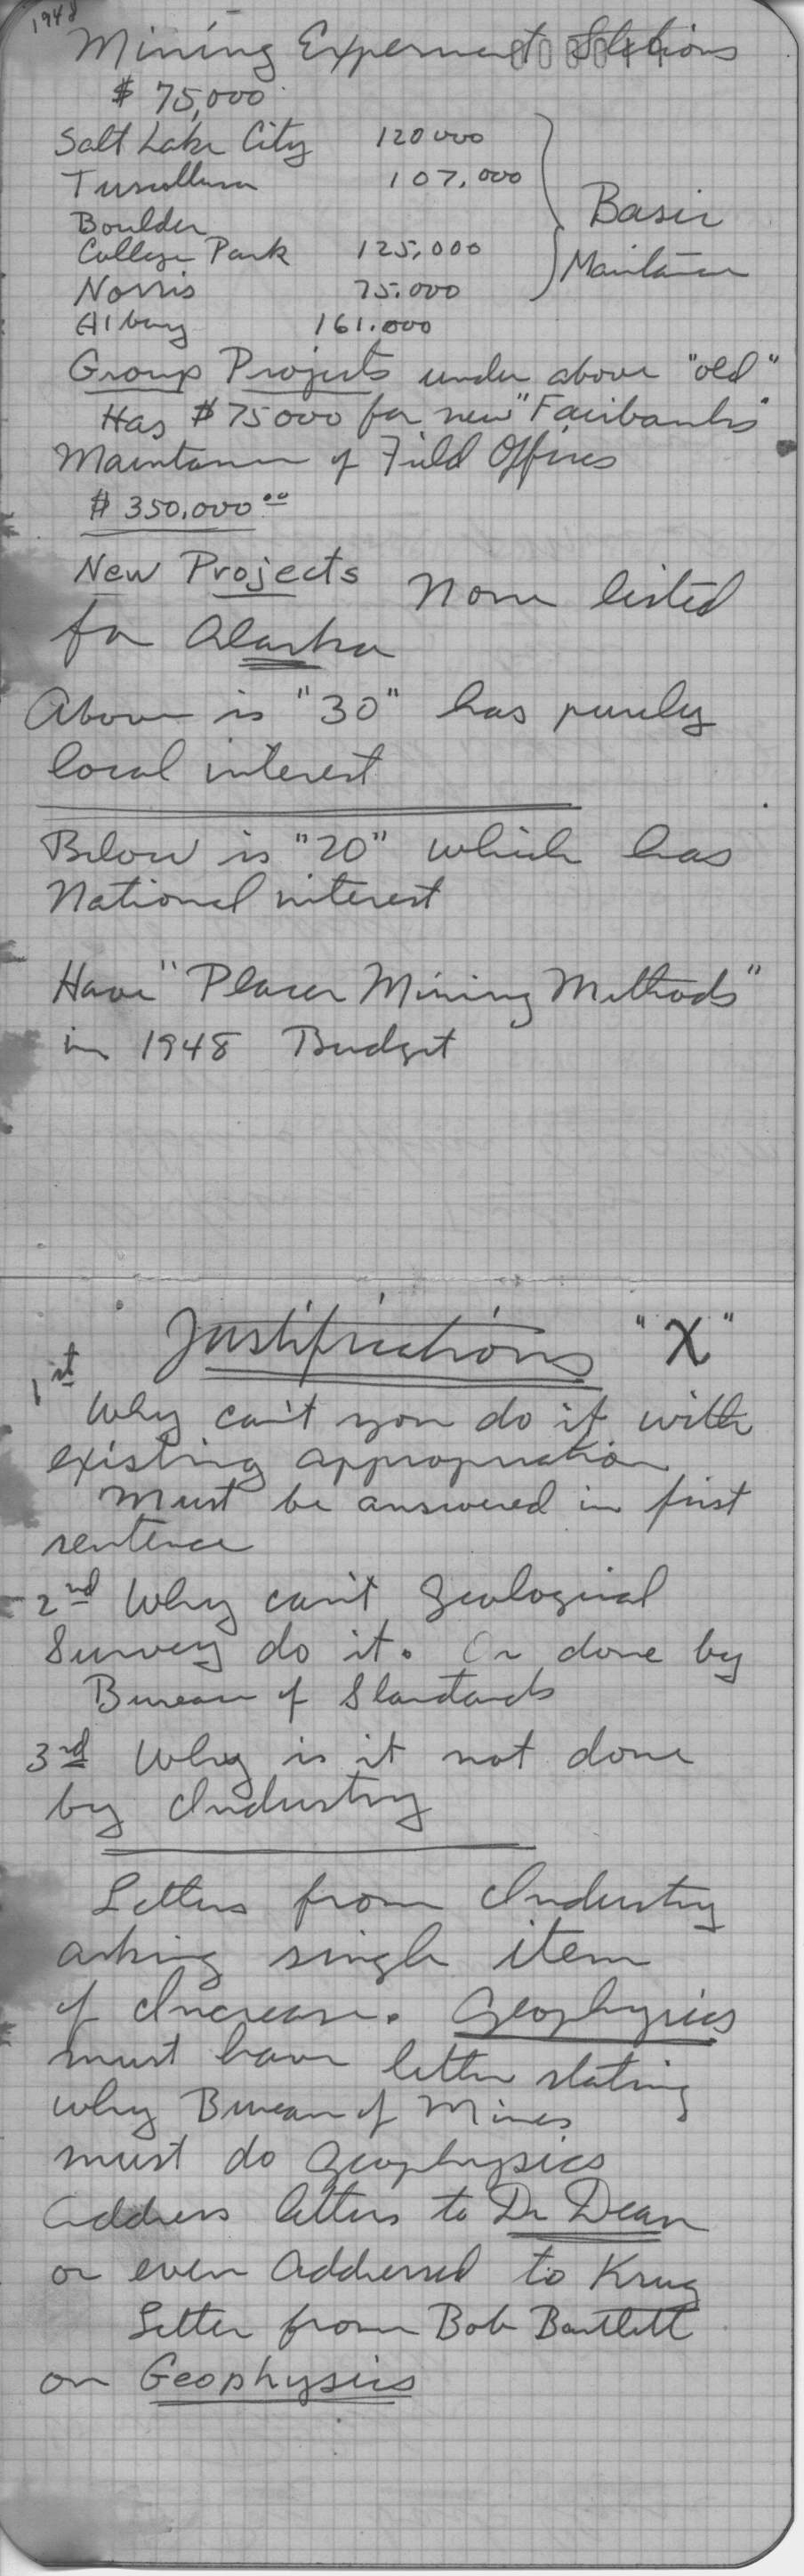 1948
Mining Experiment Stations
$ 75,000
Salt Lake City 120000
Tuscallusa 107,000
Boulder
College Park 125,000
Norris 75.000
Albany 161.000
Basic
Maintance
Group Projects under above "old"
Has $75000 for new "Fairbanks"
Maintance of Field Offices
$ 350,000.00
New Projects None listed
for Alaska
Above is "30" has purely
local interest
Below is "20" which has
National interest
Have "Placer Mining Methods"
in 1948 Budget
Justifications "X"
1st
Why can't you do it with
existing appropriation
Must be answered in first
sentence
2nd Why can't Geological
Survey do it. Or done by
Bureau of Standards
3rd Why is it not done
by Industry
Letters from Industry
asking single item
of Increase. Geophysics
must have letter stating
why Bureau of Mines
must do Geophysics
Address letters to Dr Dean
or even Addressed to Krug
Letter from Bob Bartlett
on Geophysics